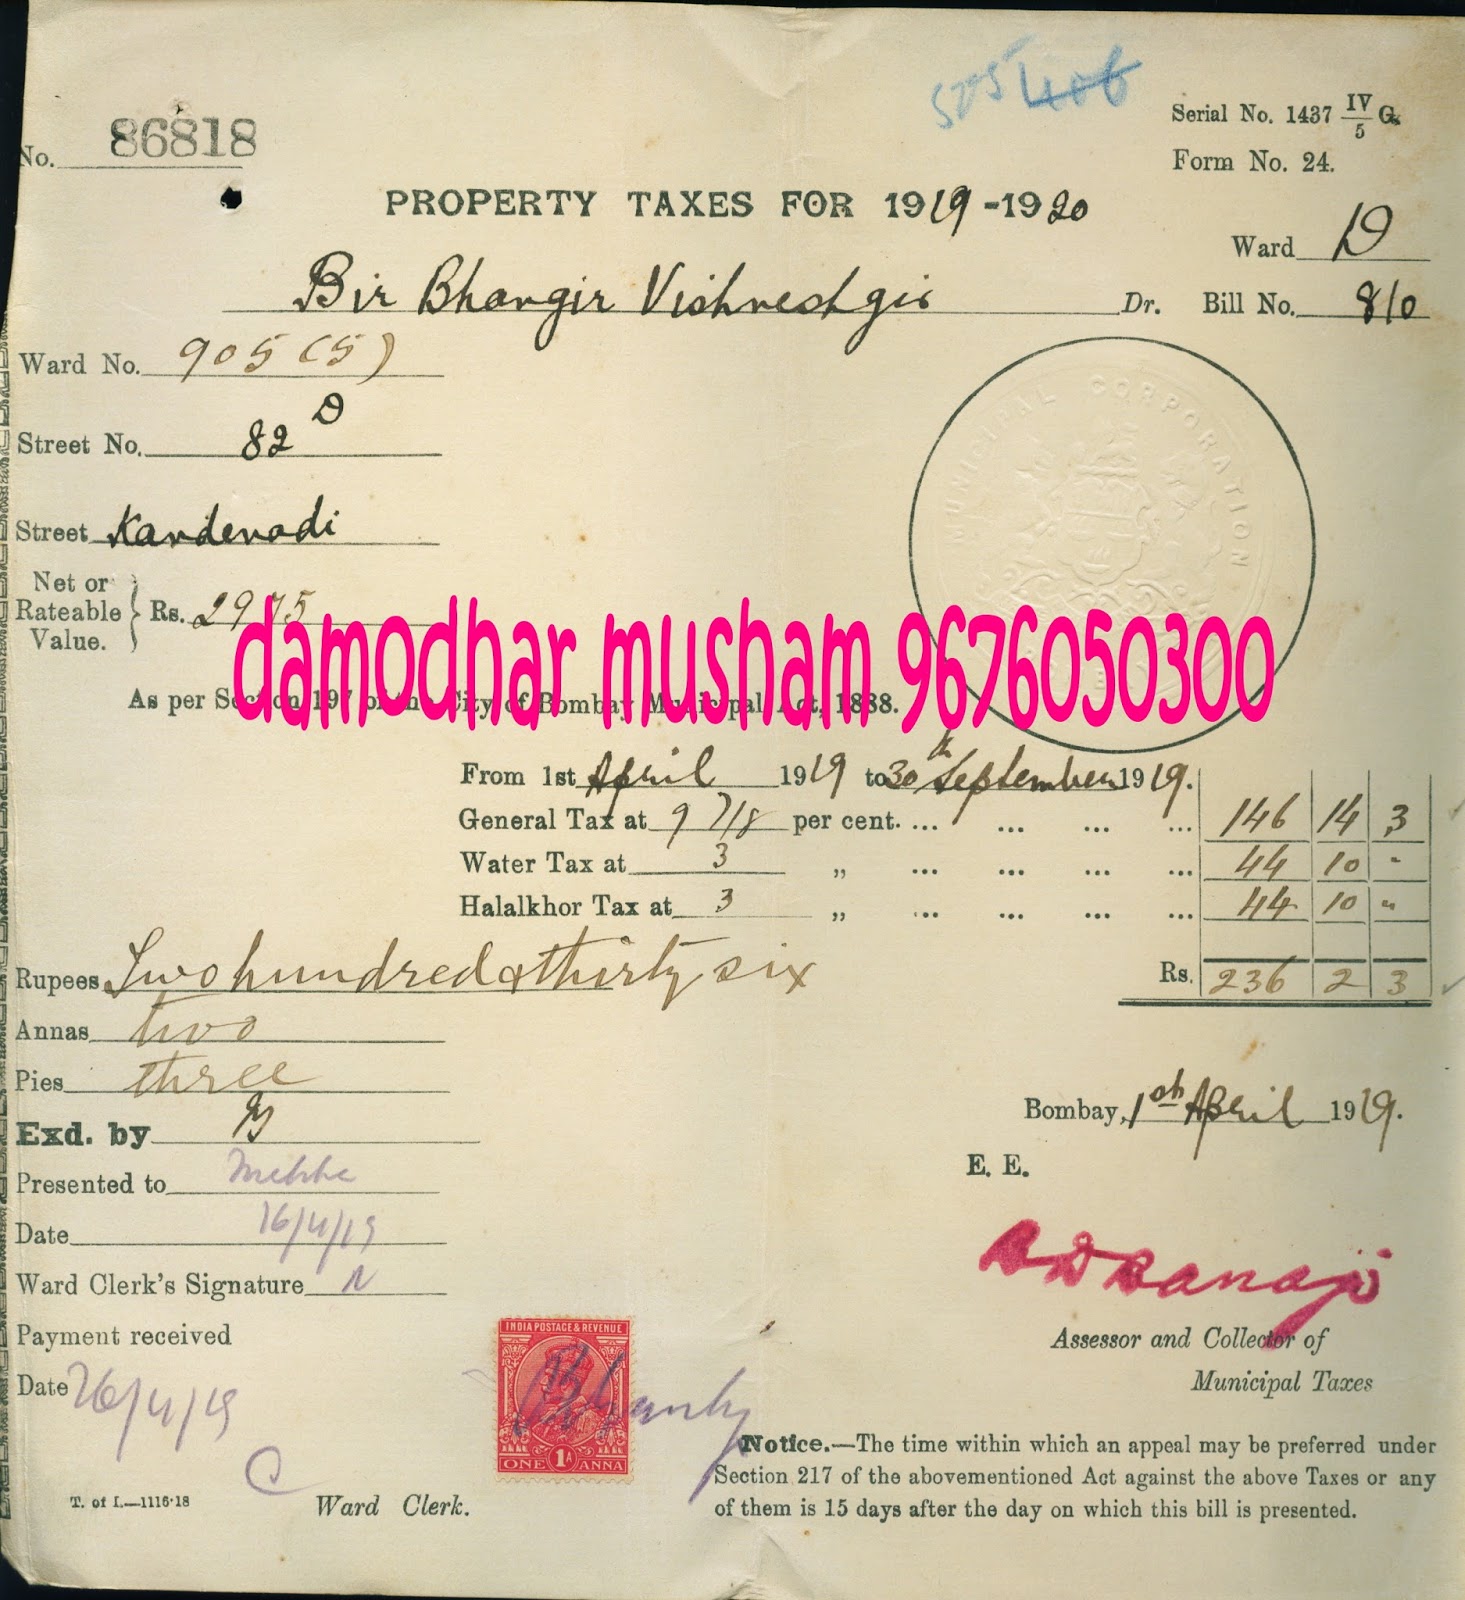 525406
Serial No. 1437 IV/5 G.
No. 86818
Form No. 24.
PROPERTY TAXES FOR 1919-1920
Ward D
Bir Bhangir Vishveshgir Dr. Bill No. 810
Ward No. 905 (5)
MUNICIPAL CORPORATION
Street No. 82 D
Street Kandevadi
Net or Rateable Value. } Rs. 2975
damodhar musham 9676050300
As per Section 197 of the City of Bombay Municipal Act, 1888.
From 1st April 1919 to 30th September 1919.
General Tax at 9 7/8 per cent. ... ... ... ... 146 14 3
Water Tax at 3 „ ... ... ... ... 44 10 -
Halalkhor Tax at 3 „ ... ... ... ... 44 10 -
Rupees Two hundred & thirty six Rs. 236 2 3
Annas two
Pies three
Bombay, 1st April 1919.
Exd. by
E. E.
Presented to
Date 16/4/19
Ward Clerk's Signature
Payment received
INDIA POSTAGE & REVENUE
Assessor and Collector of
Municipal Taxes
Date 26/4/19
1A
ONE ANNA
Notice.—The time within which an appeal may be preferred under
Section 217 of the abovementioned Act against the above Taxes or any
of them is 15 days after the day on which this bill is presented.
T. of I.—1116·18
Ward Clerk.